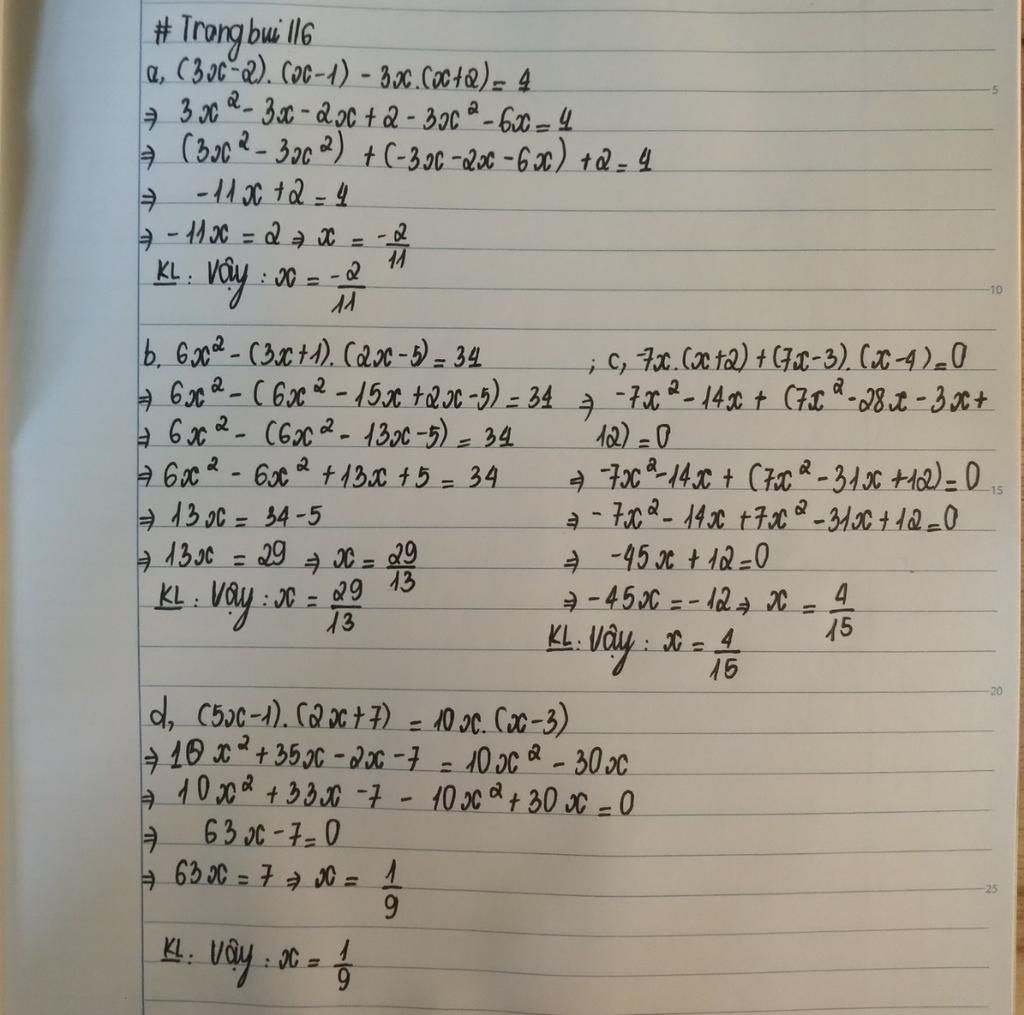 # Trangbui 116
a, (3x-2).(x-1) - 3x.(x+2) = 4
⇒ 3x² - 3x - 2x + 2 - 3x² - 6x = 4
⇒ (3x² - 3x²) + (-3x - 2x - 6x) + 2 = 4
⇒ -11x + 2 = 4
⇒ -11x = 2 ⇒ x = -2/11
KL: Vậy: x = -2/11
b, 6x² - (3x+1).(2x-5) = 34
⇒ 6x² - (6x² - 15x + 2x - 5) = 34
⇒ 6x² - (6x² - 13x - 5) = 34
⇒ 6x² - 6x² + 13x + 5 = 34
⇒ 13x = 34 - 5
⇒ 13x = 29 ⇒ x = 29/13
KL: Vậy: x = 29/13
; c, -7x.(x+2) + (7x-3).(x-4) = 0
⇒ -7x² - 14x + (7x² - 28x - 3x +
12) = 0
⇒ -7x² - 14x + (7x² - 31x + 12) = 0
⇒ -7x² - 14x + 7x² - 31x + 12 = 0
⇒ -45x + 12 = 0
⇒ -45x = -12 ⇒ x = 4/15
KL: Vậy: x = 4/15
d, (5x-1).(2x+7) = 10x.(x-3)
⇒ 10x² + 35x - 2x - 7 = 10x² - 30x
⇒ 10x² + 33x - 7 - 10x² + 30x = 0
⇒ 63x - 7 = 0
⇒ 63x = 7 ⇒ x = 1/9
KL: Vậy: x = 1/9
5
10
15
20
25